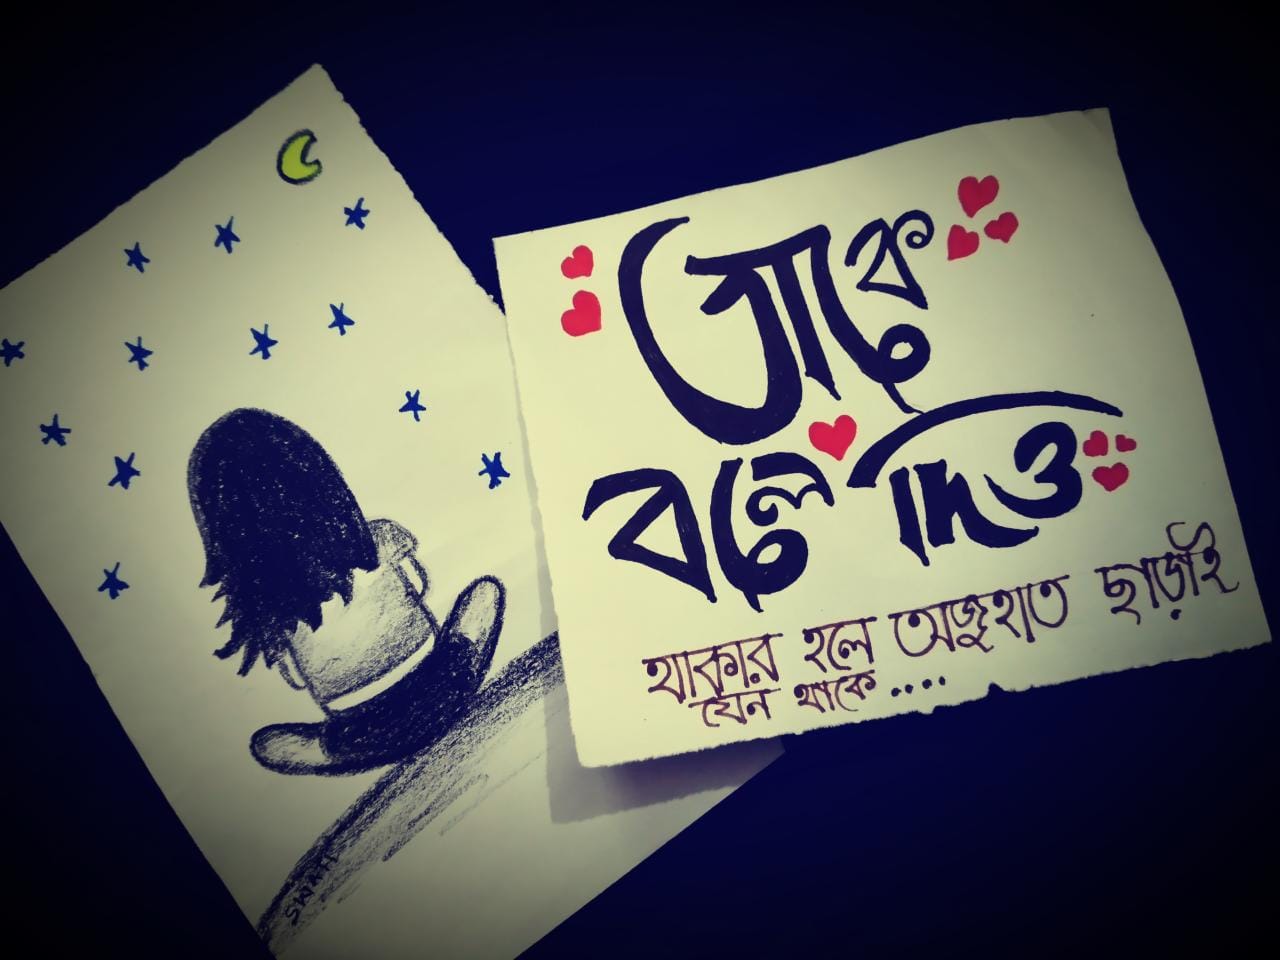 তাকে
বলে দিও
থাকার হলে অজুহাত ছাড়াই
যেন থাকে ....
SWATI